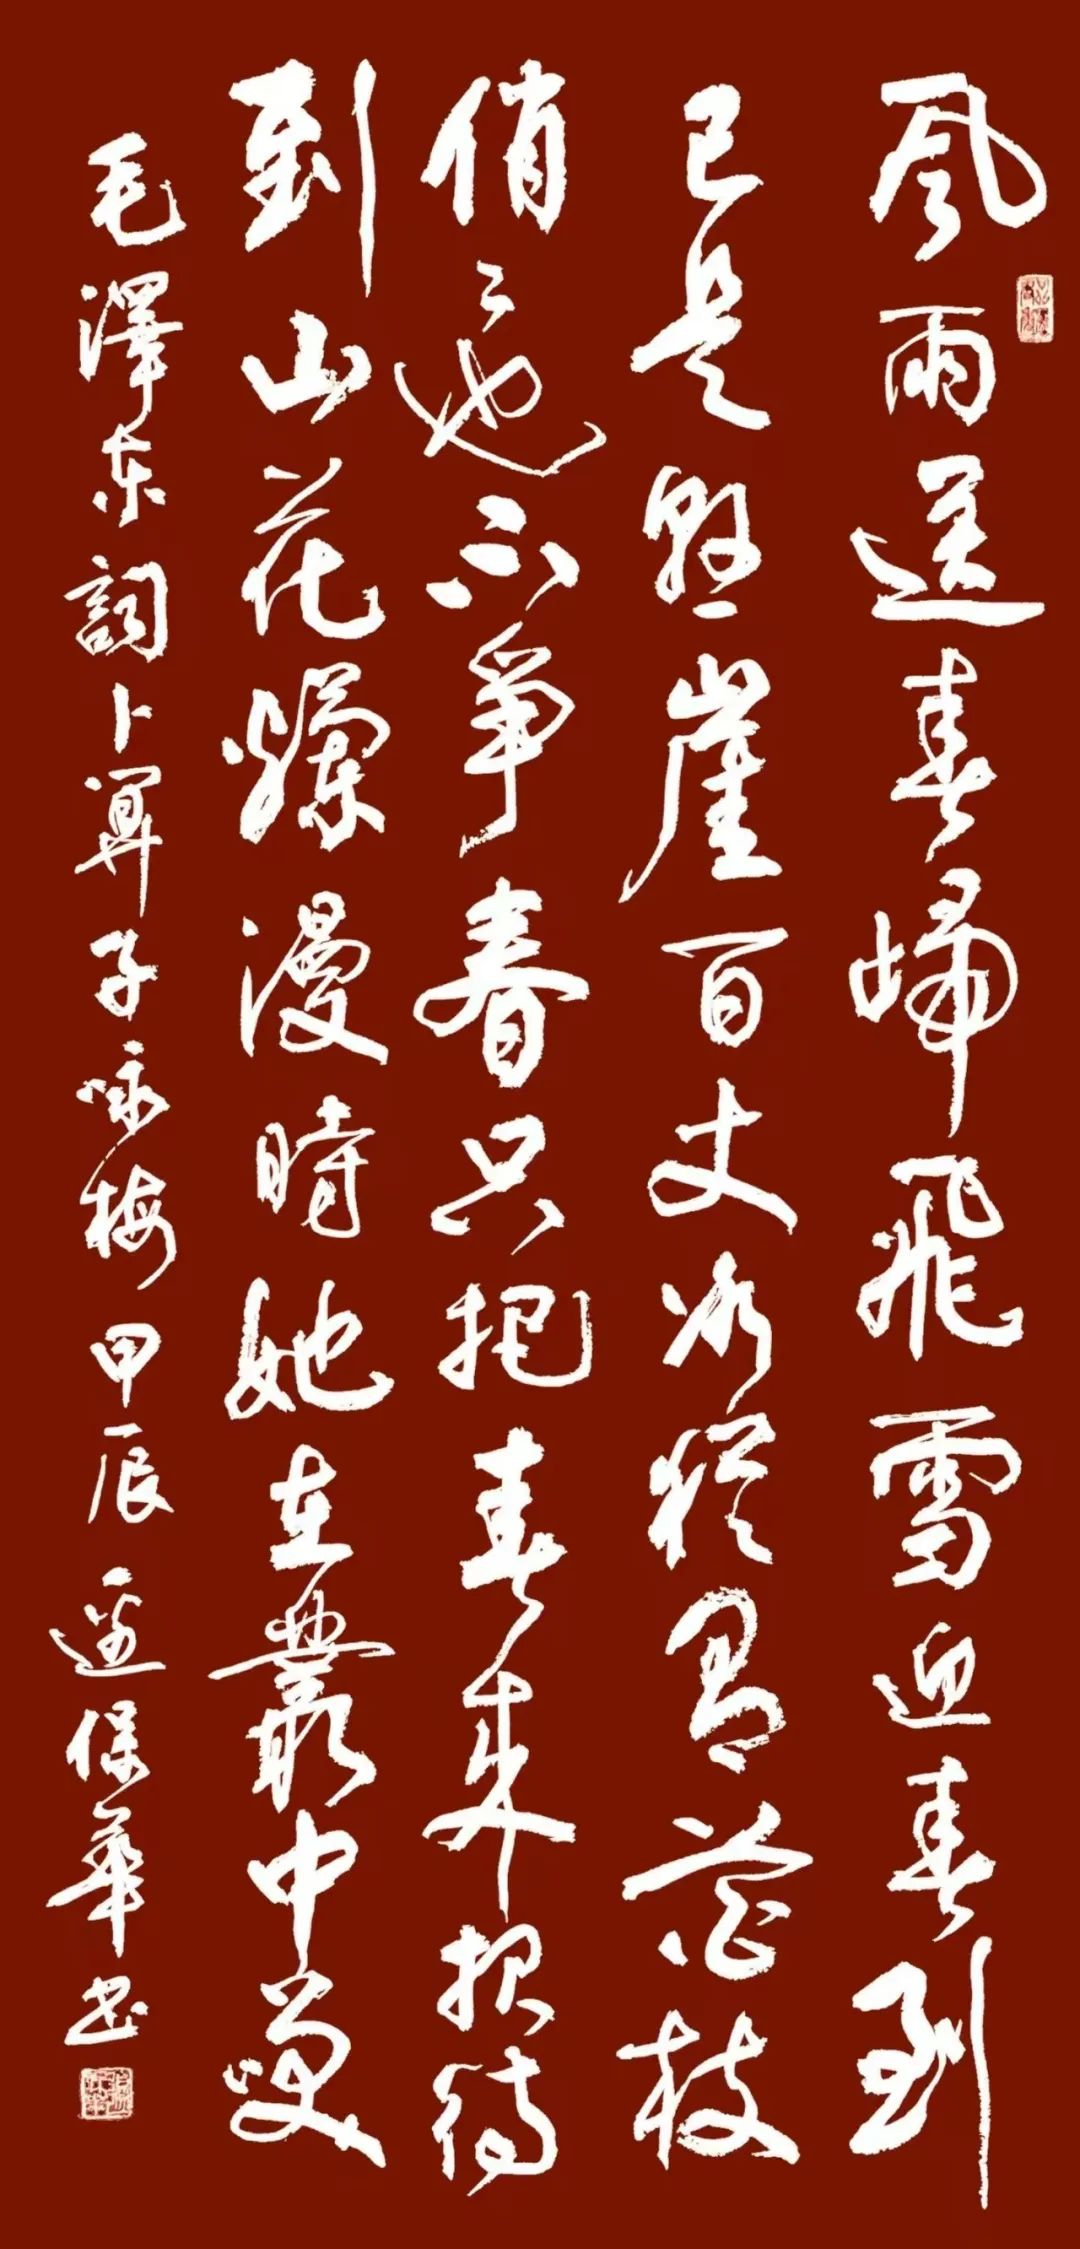 風雨送春歸飛雪迎春到
已是懸崖百丈冰猶有花枝
俏々也不爭春只把春来報待
到山花爛漫時她在叢中笑
毛澤东詞卜算子咏梅甲辰保華书